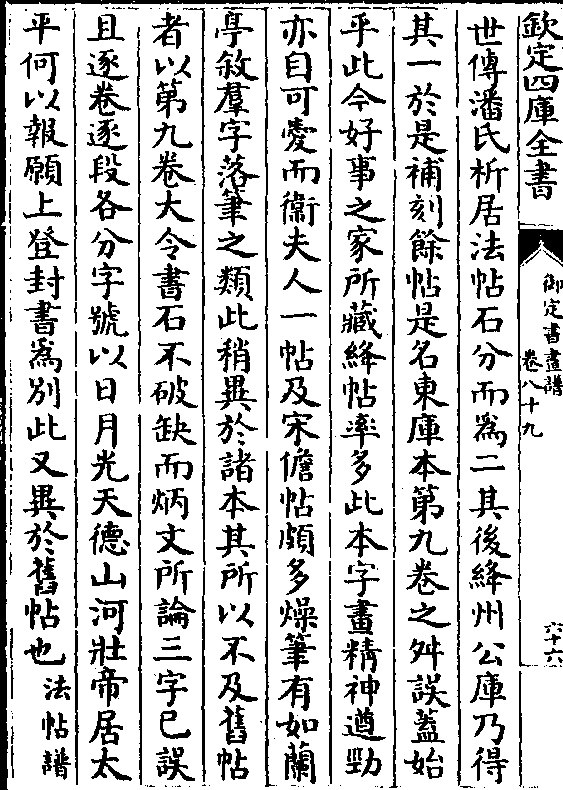 欽定四庫全書
御定書畫譜
卷八十九
六十六
世傳潘氏析居法帖石分而爲二其後絳州公庫乃得
其一於是補刻餘帖是名東庫本第九卷之舛誤蓋始
乎此今好事之家所藏絳帖率多此本字畫精神遒勁
亦自可愛而衞夫人一帖及宋儋帖頗多燥筆有如蘭
亭敘羣字落筆之類此稍異於諸本其所以不及舊帖
者以第九卷大令書石不破缺而炳文所論三字已誤
且逐卷逐段各分字號以日月光天德山河壯帝居太
平何以報願上登封書爲別此又異於舊帖也法帖譜